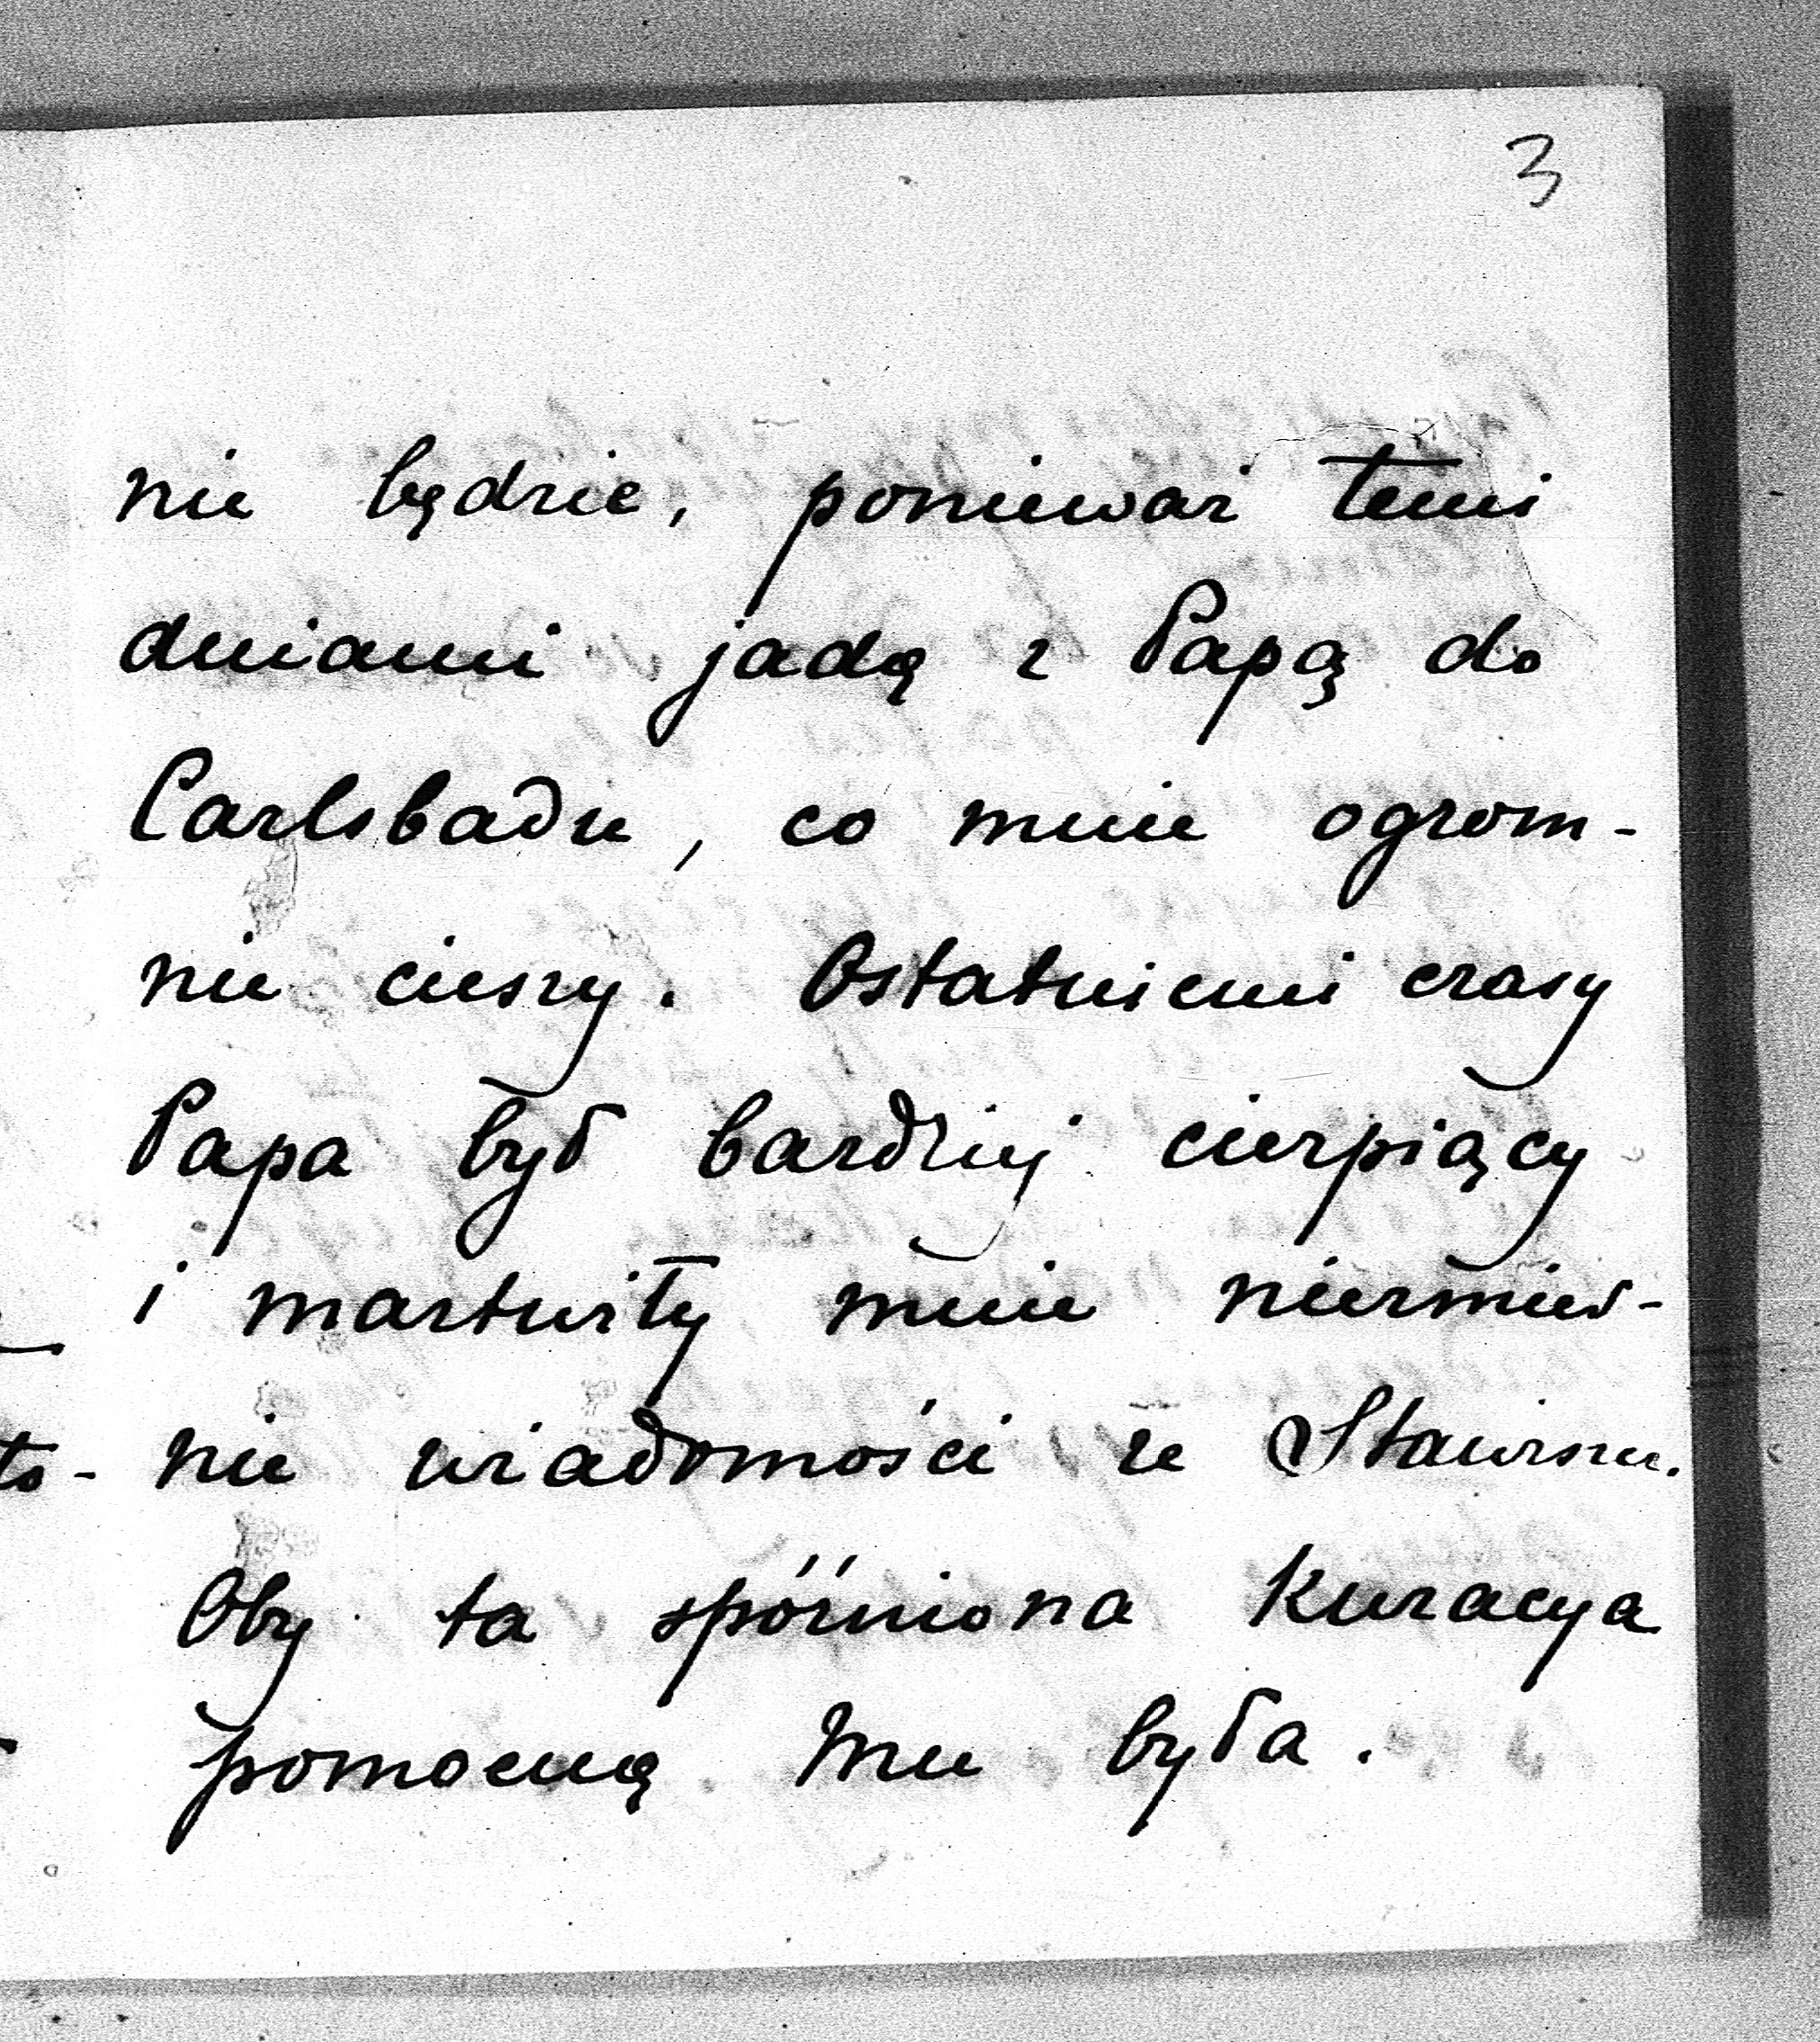 3
nie będzie, ponieważ temi
dniami jadę z Papą do
Carlsbadu, co mnie ogrom-
nie cieszy. Ostatniemi czasy
Papa był bardziej cierpiący
i martwiły mnie niezmier-
nie wiadomości ze Stawiszcz.
Oby ta spóźniona kuracya
pomocną Mu była.